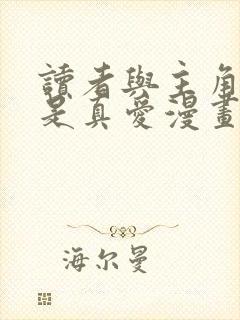 讀者與主角
是真愛漫畫
海尔曼